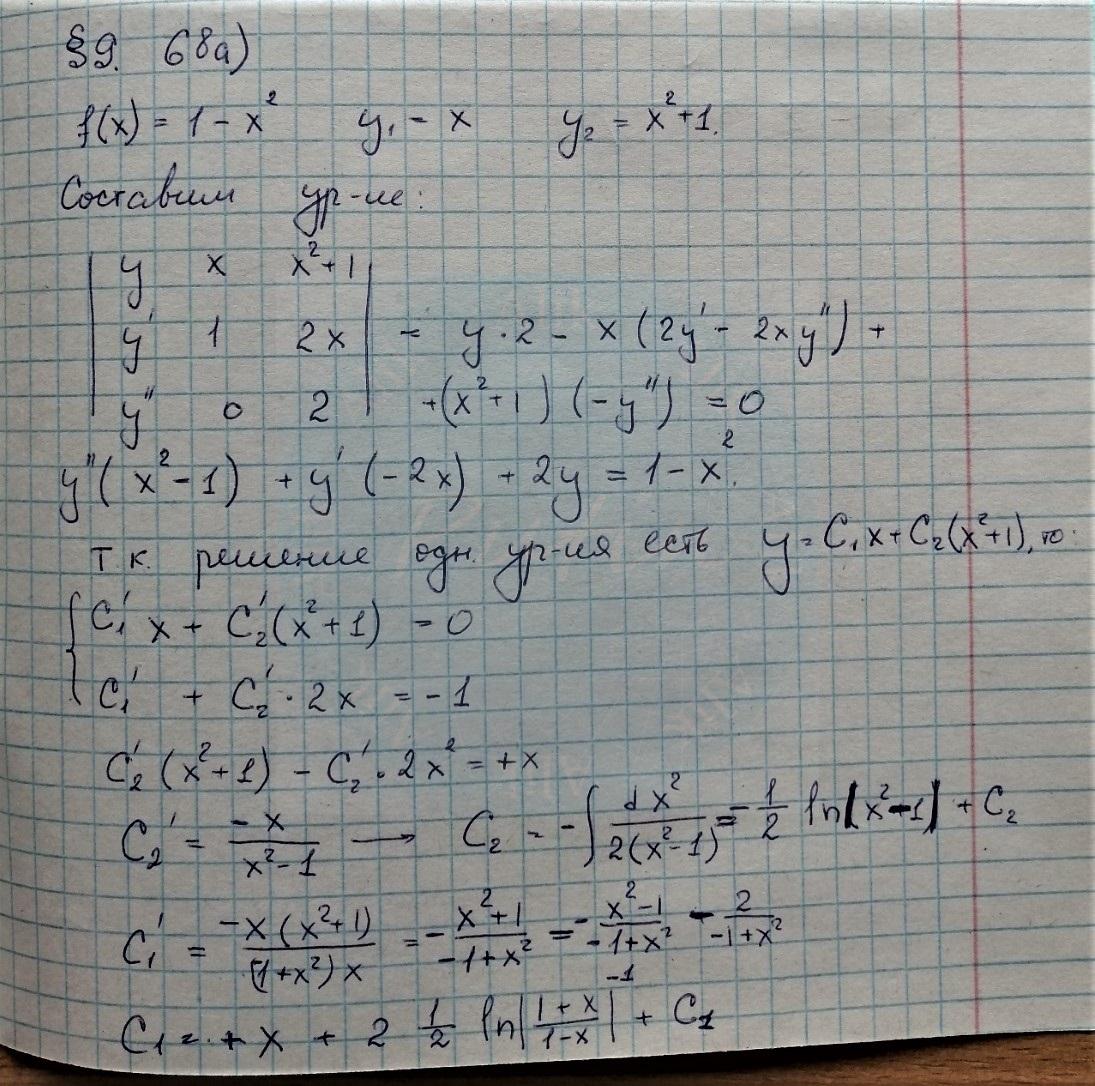 §9. 68а)
f(x) = 1 - x² y₁ = x y₂ = x²+1.
Составим ур-ие:
| y x x²+1 |
| y' 1 2x | = y·2 - x(2y' - 2xy'') +
| y'' 0 2 | +(x²+1)(-y'') = 0
y''(x²-1) + y'(-2x) + 2y = 1 - x².
Т.к. решение одн. ур-ия есть y = C₁x + C₂(x²+1), то:
{ C₁'x + C₂'(x²+1) = 0
C₁' + C₂'·2x = -1
C₂'(x²+1) - C₂'·2x² = +x
C₂' = -x/(x²-1) → C₂ = -∫ dx²/(2(x²-1)) = -1/2 ln|x²-1| + C₂
C₁' = -x(x²+1)/((1+x²)x) = -(x²+1)/(-1+x²) = -(x²-1)/(-1+x²) - 2/(-1+x²)
-1
C₁ = + x + 2 1/2 ln|(1+x)/(1-x)| + C₁